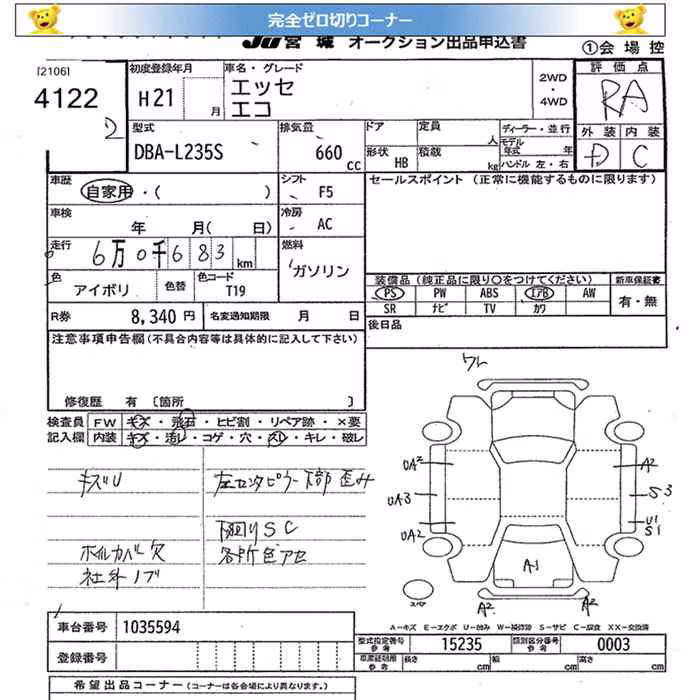 完全ゼロ切りコーナー
JU宮城 オークション出品申込書
①会場控
[2106]
4122
初度登録年月
H21
月
車名・グレード
エッセ
エコ
2WD
・
4WD
評価点
RA
外装 内装
D C
型式
DBA-L235S
排気量
660
cc
ドア
形状 HB
定員
人
積載
kg
ディーラー・並行
モデル年式 年
ハンドル 左・右
車歴
自家用・( )
シフト
F5
セールスポイント (正常に機能するものに限ります)
車検
年 月( 日)
冷房
AC
走行
6万0千683km
燃料
ガソリン
色
アイボリ
色替
色コード
T19
装備品(純正品に限り○をつけてください)
PS PW ABS エアB AW
SR ナビ TV カワ
新車保証書
有・無
R券 8,340 円
名変通知期限 月 日
後日品
注意事項申告欄(不具合内容等は具体的に記入して下さい)
修復歴 有 〔箇所 〕
検査員 FW キズ・飛石・ヒビ割・リペア跡・×要
記入欄 内装 キズ・汚レ・コゲ・穴・スレ・キレ・破レ
キズU
左センタピラー下部歪み
下回りSC
ホイルカバ欠
各所色アセ
社外ノブ
ワレ
UA2
A2
UA3
S3
UA2
U1
S1
A1
スペア
A2
A2
A=キズ E=エクボ U=凹み W=補修跡 S=サビ C=腐食 XX=交換済
車台番号 1035594
型式指定番号
参考
15235
類別区分番号
参考
0003
登録番号
車庫証明用
参考
長さ cm
幅 cm
高さ cm
希望出品コーナー(コーナーは各会場により異なります。)